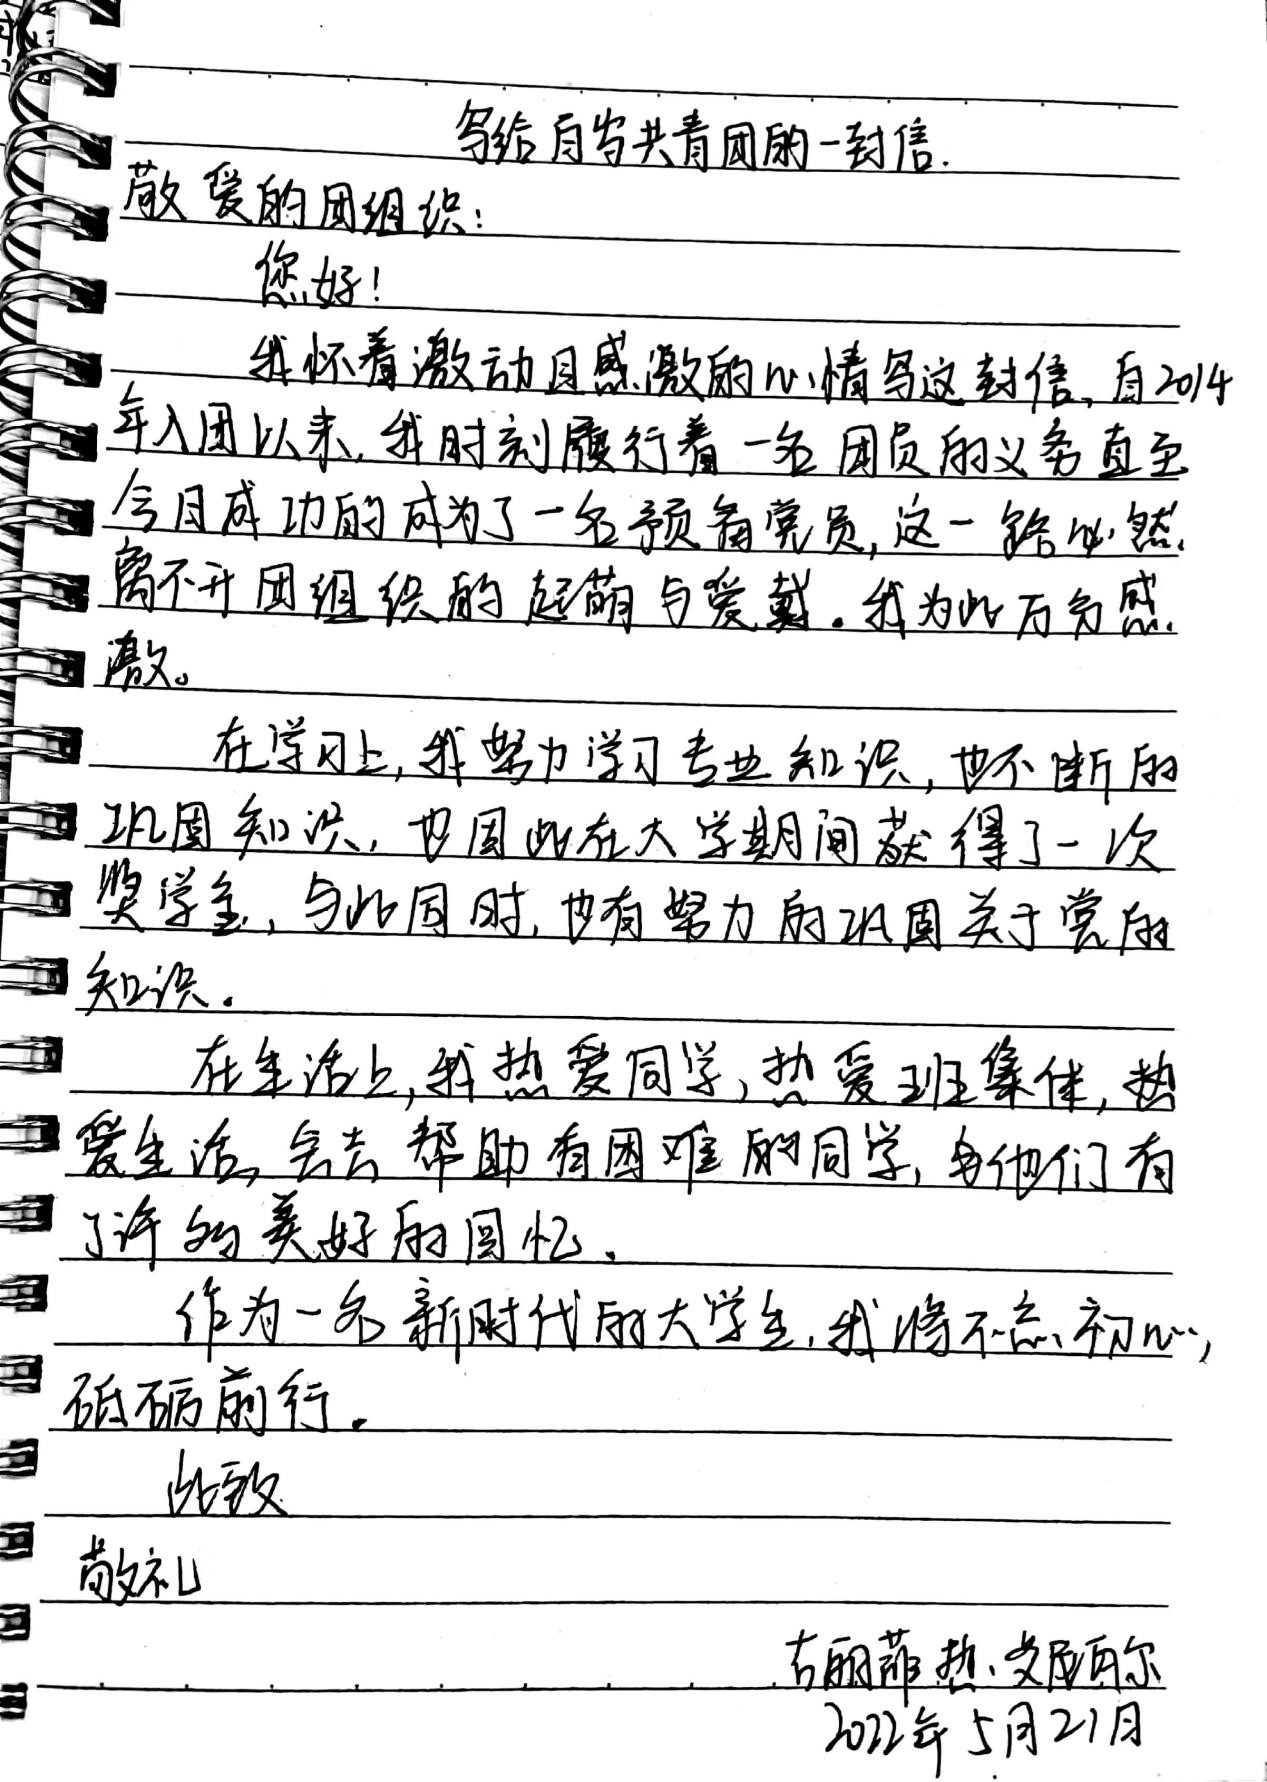 写给百岁共青团的一封信.
敬爱的团组织:
您好!
我怀着激动且感激的心情写这封信,自2014
年入团以来,我时刻履行着一名团员的义务直至
今日成功的成为了一名预备党员,这一路必然
离不开团组织的起萌与爱戴。我为此万分感
激。
在学习上,我努力学习专业知识,也不断的
巩固知识,也因此在大学期间获得了一次
奖学金,与此同时,也有努力的巩固关于党的
知识。
在生活上,我热爱同学,热爱班集体,热
爱生活,会去帮助有困难的同学,与他们有
了许多美好的回忆。
作为一名新时代的大学生,我将不忘初心,
砥砺前行。
此致
敬礼
古丽菲热·艾尼瓦尔
2022年5月21日